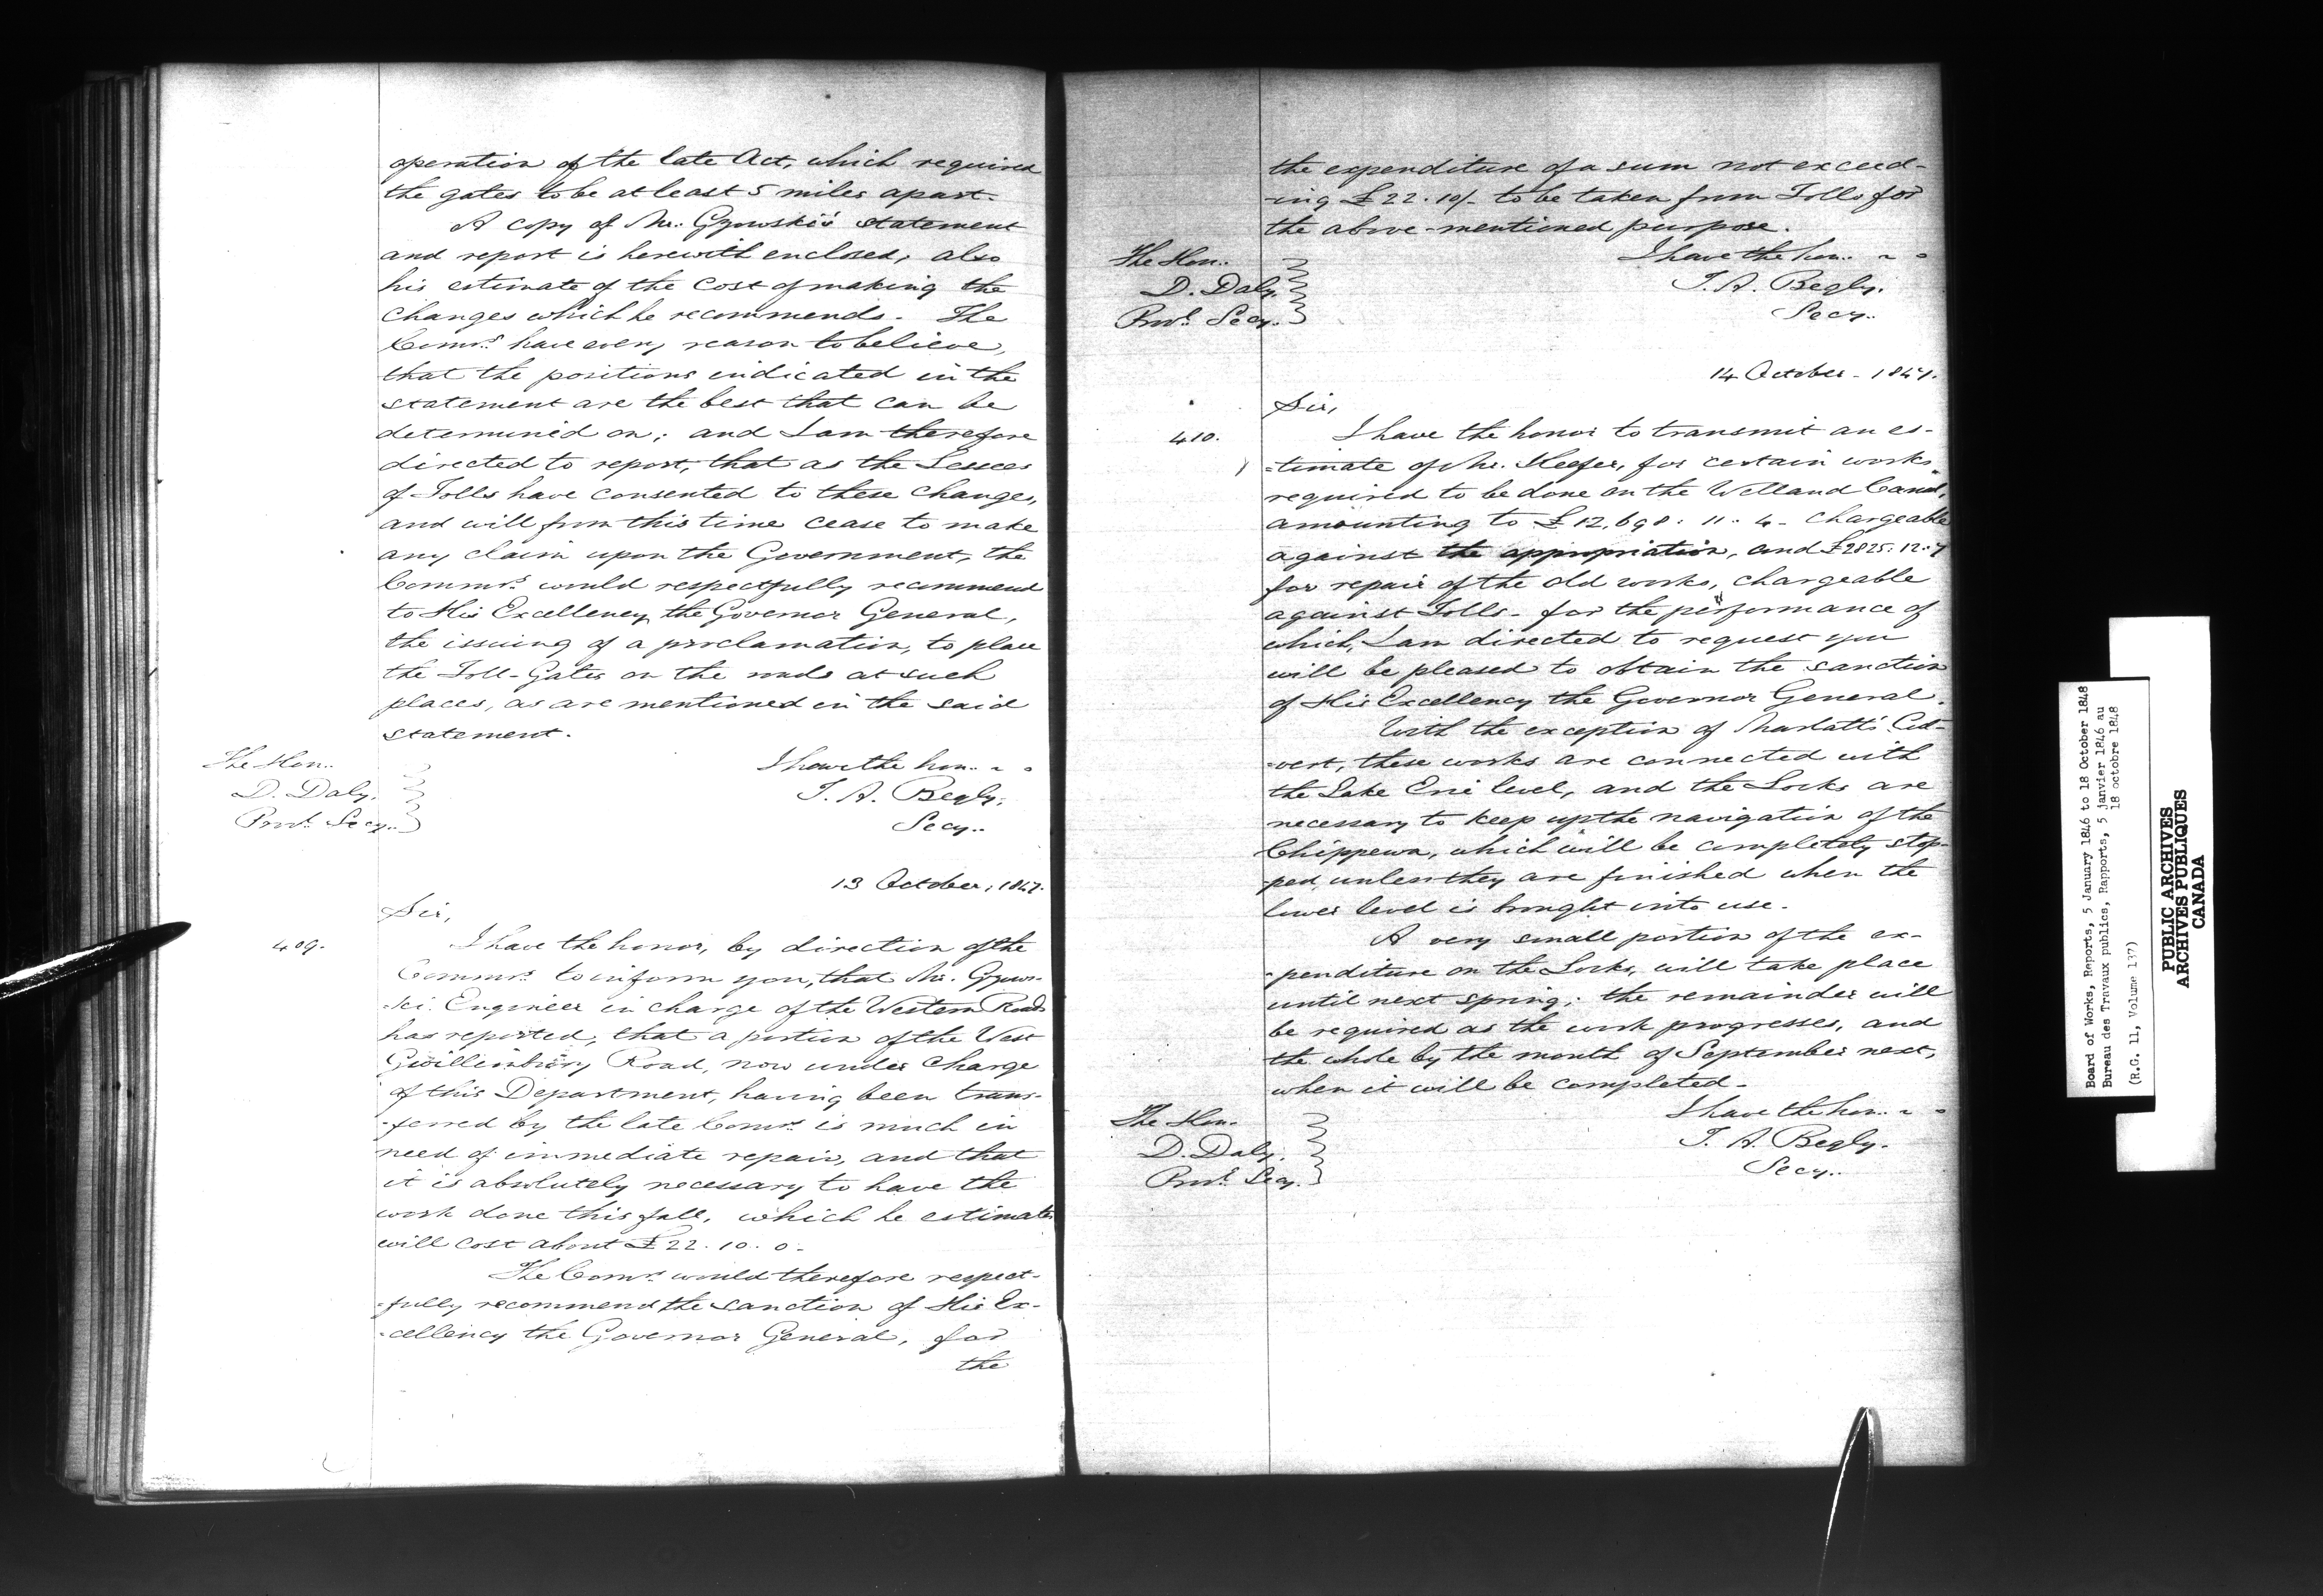 operation of the late Act, which required
the gates to be at least 5 miles apart.
A copy of Mr. Gzowski's statement
and report is herewith enclosed, also
his estimate of the cost of making the
changes which he recommends. The
Comrs. have every reason to believe,
that the positions indicated in the
statement are the best that can be
determined on; and I am therefore
directed to report, that as the Lessees
of Tolls have consented to these changes,
and will from this time cease to make
any claim upon the Government, the
Commrs. would respectfully recommend
to His Excellency the Governor General,
the issuing of a proclamation, to place
the Toll-Gates on the roads at such
places, as are mentioned in the said
statement.
The Hon.
D. Daly.
Provl. Secy.
I have the hon.
T. A. Begly.
Secy.
13 October, 1847.
Sir,
409.
I have the honor, by direction of the
Commrs. to inform you, that Mr. Gzows-
-ki. Engineer in charge of the Western Roads
has reported, that a portion of the West
Gwillimbury Road, now under charge
of this Department, having been trans-
-ferred by the late Comrs. is much in
need of immediate repair, and that
it is absolutely necessary to have the
work done this fall, which he estimates
will cost about £22. 10. 0-
The Comrs. would therefore respect-
-fully recommend the sanction of His Ex-
-cellency the Governor General, for
the
the expenditure of a sum not exceed-
-ing £22. 10/- to be taken from Tolls for
the above-mentioned purpose.
I have the hon.
The Hon.
D. Daly.
Provl. Secy.
T. A. Begly.
Secy.
14 October - 1847.
Sir,
410.
I have the honor to transmit an es-
-timate of Mr. Keefer, for certain works
required to be done on the Welland Canal,
amounting to £12,698: 11: 4- chargeable
against the appropriation, and £2825: 12: 7
for repair of the old works, chargeable
against Tolls- for the performance of
which, I am directed to request you
will be pleased to obtain the sanction
of His Excellency the Governor General.
With the exception of Marlatt's Cul-
-vert, these works are connected with
the Lake Erie level, and the Locks are
necessary to keep up the navigation of the
Chippewa, which will be completely stop-
-ped, unless they are finished when the
lower level is brought into use.
A very small portion of the ex-
-penditure on the Locks, will take place
until next spring; the remainder will
be required as the work progresses, and
the whole by the month of September next,
when it will be completed-
I have the hon.
The Hon.
D. Daly.
Provl. Secy.
T. A. Begly.
Secy.
Board of Works, Reports, 5 January 1846 to 18 October 1848
Bureau des Travaux publics, Rapports, 5 janvier 1846 au
18 octobre 1848
(R.G. 11, Volume 137)
PUBLIC ARCHIVES
ARCHIVES PUBLIQUES
CANADA